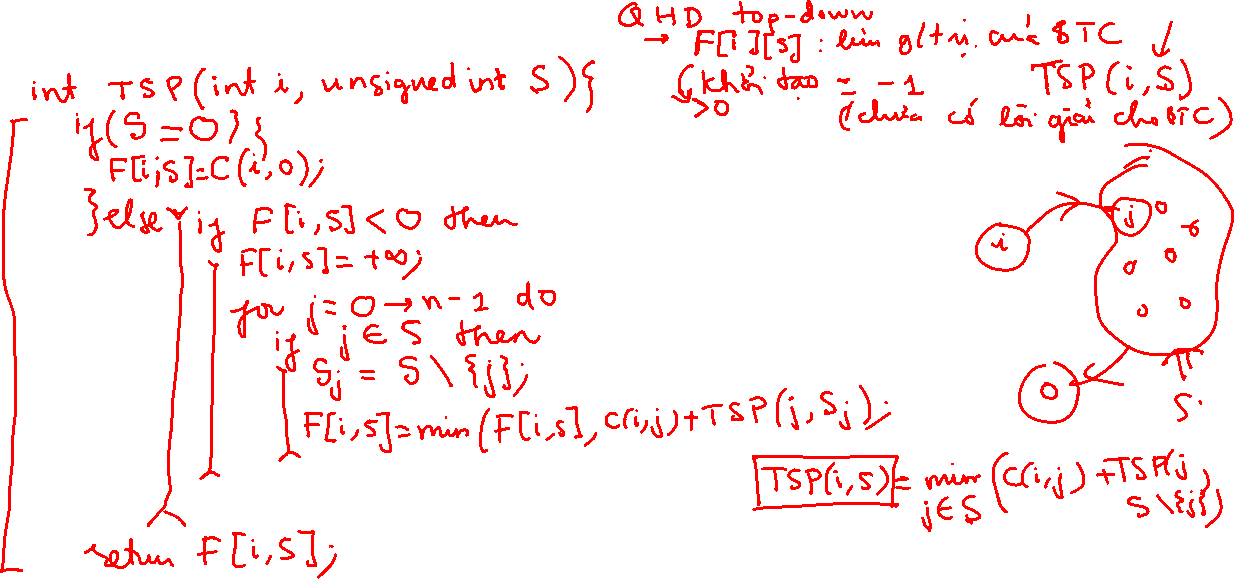 QHD top-down
→ F[i][s] : lưu g/trị của BTC
(khởi tạo = -1 TSP(i,S)
>0 (chưa có lời giải cho BTC)
int TSP(int i, unsigned int S){
if(S==0){
F[i,S]=C(i,0);
}else if F[i,S]<0 then
F[i,S]=+∞;
for j=0→n-1 do
if j∈S then
Sj = S\{j};
F[i,S]=min(F[i,S], C(i,j)+TSP(j,Sj);
return F[i,S];
i
j
0
S
TSP(i,S) = min (C(i,j)+TSP(j,
j∈S S\{j})